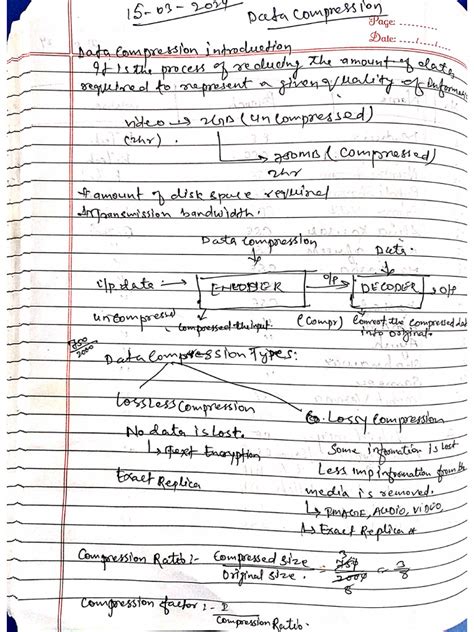 15-03-2024
Data Compression
Page:
Date:
Data Compression introduction
It is the process of reducing the amount of data
required to represent a given quality of Informa
video → 2GB (Uncompressed)
(2hr)
→ 700MB (Compressed)
2hr
amount of disk space required
Transmission bandwidth.
Data Compression
Data.
i/p data → ENCODER o/p → DECODER → o/p
uncompressed
Compressed the input
(Compr) Convert the compressed dat
into original.
750
2000
Data Compression Types:
LossLess Compression
Lossy Compression
No data is lost.
Some information is lost
↳ Text Encryption
Less imp information from the
Exact Replica
media is removed.
↳ IMAGE, AUDIO, VIDEO,
↳ Exact Replica
Compression Ratio:- Compressed Size / Original Size = 750 / 2000 = 3 / 8
3
8
Compression factor :- 1 / Compression Ratio.